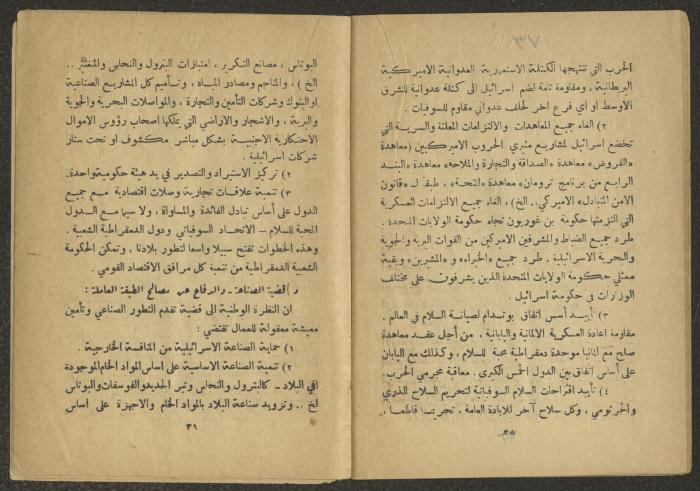 ٧٣
الحرب التي تنتهجها الكتلة الاستعمارية العدوانية الاميركية
البريطانية ، ومقاومة تامة لضم اسرائيل الى كتلة عدوانية للشرق
الاوسط او اي فرع اخر لحلف عدواني مقاوم للسوفيات .
٢) الغاء جميع المعاهدات والالتزامات المعلنة والسرية التي
تخضع اسرائيل لمشاريع مثيري الحروب الاميركيين (معاهدة
«القروض» معاهدة «الصداقة والتجارة والملاحة» معاهدة «البند
الرابع من برنامج ترومان» معاهدة «المنحة» ، طبقا لـ «قانون
الامن المتبادل» الاميركي.. الخ) ، الغاء جميع الالتزامات العسكرية
التي التزمتها حكومة بن غوريون تجاه حكومة الولايات المتحدة .
طرد جميع الضباط والمشرفين الاميركيين من القوات البرية والجوية
والبحرية الاسرائيلية ، طرد جميع «الخبراء» و «المشيرين» وبقية
ممثلي حكومة الولايات المتحدة الذين يشرفون على مختلف
الوزارات في حكومة اسرائيل .
٣) تأييد أسس اتفاق بوتسدام لصيانة السلام في العالم .
مقاومة اعادة العسكرية الالمانية واليابانية ، من أجل عقد معاهدة
صلح مع المانيا موحدة دمقراطية محبة للسلام ، وكذلك مع اليابان
على أساس اتفاق بين الدول الخمس الكبرى . معاقبة مجرمي الحرب.
٤) تأييد اقتراحات السلام السوفياتية لتحريم السلاح الذري
والجرثومي ، وكل سلاح آخر للابادة العامة ، تحريما قاطعا ،
٣٠
البوتاس ، مصانع التكرير ، امتيازات البترول والنحاس والمنغنيز ..
الخ ) ، والمناجم ومصادر المياه ، وتأميم كل المشاريع الصناعية
او البنوك وشركات التأمين والتجارة ، والمواصلات البحرية والجوية
والبرية ، والاشجار والاراضي التي يملكها اصحاب رؤوس الاموال
الاحتكارية الاجنبية بشكل مباشر مكشوف او تحت ستار
شركات اسرائيلية .
٢) تركيز الاستيراد والتصدير في يد هيئة حكومية واحدة.
٣) تنمية علاقات تجارية وصلات اقتصادية مع جميع
الدول على أساس تبادل الفائدة والمساواة ، ولا سيما مع الدول
المحبة للسلام – الاتحاد السوفياتي ودول الدمقراطية الشعبية .
وهذه الخطوات تفتح سبيلا واسعا لتطور بلادنا ، وتمكن الحكومة
الشعبية الدمقراطية من تنمية كل مرافق الاقتصاد القومي .
قضية الصناعة – والدفاع عن مصالح الطبقة العاملة :
ان النظرة الوطنية الى قضية تقدم التطور الصناعي وتأمين
معيشة معقولة للعمال تقتضي :
١) حماية الصناعة الاسرائيلية من المنافسة الخارجية .
٢) تنمية الصناعة الاساسية على اساس المواد الخام الموجودة
في البلاد – كالبترول والنحاس وتبر الحديد والفوسفات والبوتاس
الخ .. وتزويد صناعة البلاد بالمواد الخام والاجهزة على أساس
٣١